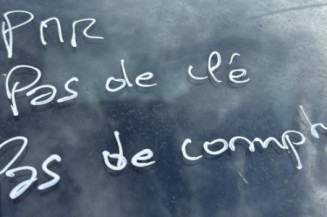 PMR
Pas de clé
Pas de compt